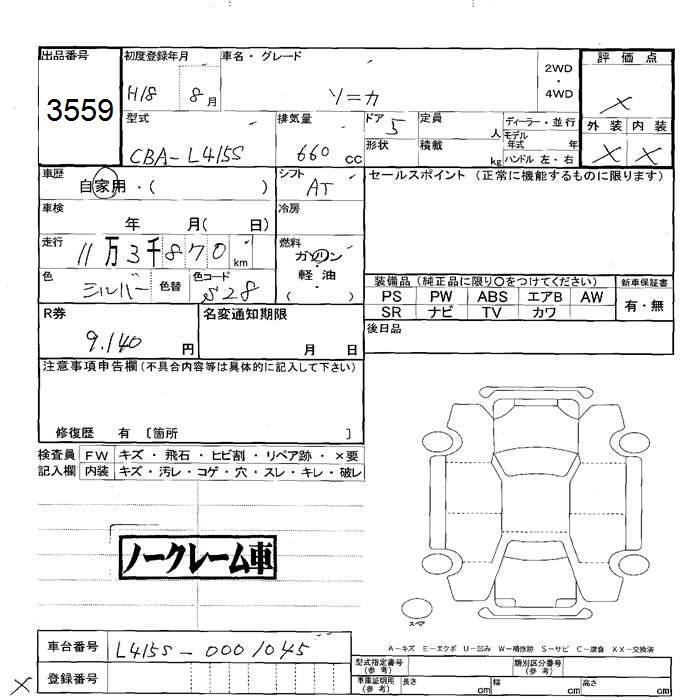 出品番号
3559
初度登録年月
H18 8月
車名・グレード
ソニカ
2WD
・
4WD
評価点
×
外装 内装
× ×
型式
CBA-L415S
排気量
660 cc
ドア
5
形状
定員
人
積載
kg
ディーラー・並行
モデル
年式 年
ハンドル 左・右
車歴
自家用・( )
シフト
AT
セールスポイント (正常に機能するものに限ります)
車検
年 月( 日)
冷房
走行
11万3千870km
燃料
ガソリン
軽・油
( )
色
シルバー
色替
色コード
S28
装備品(純正品に限り○をつけてください)
新車保証書
PS PW ABS エアB AW
有・無
SR ナビ TV カワ
後日品
R券
9.140 円
名変通知期限
月 日
注意事項申告欄(不具合内容等は具体的に記入して下さい)
修復歴 有 〔箇所 〕
検査員 FW キズ・飛石・ヒビ割・リペア跡・×要
記入欄 内装 キズ・汚レ・コゲ・穴・スレ・キレ・破レ
ノークレーム車
スペア
A−キズ E−エクボ U−凹み W−補修跡 S−サビ C−腐食 XX−交換済
車台番号
L415S-0001045
登録番号
×
型式指定番号
(参考)
類別区分番号
(参考)
車庫証明用
(参考)
長さ cm 幅 cm 高さ cm